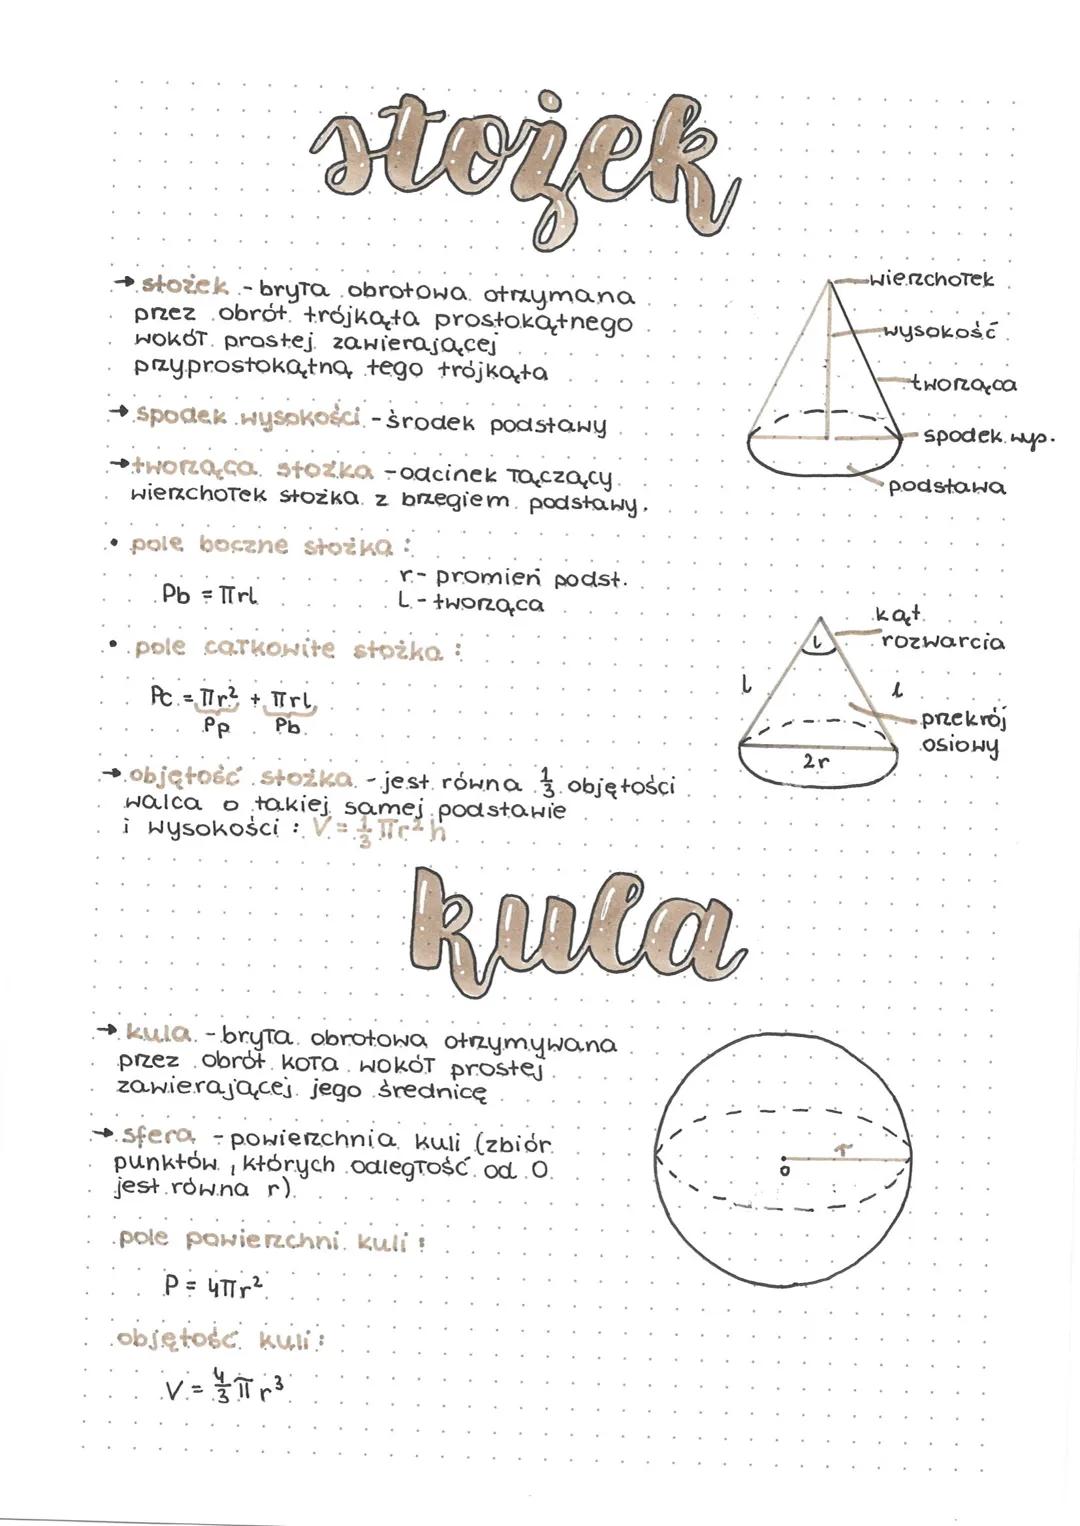 stożek
→ stożek - bryła obrotowa otrzymana
przez obrót trójkąta prostokątnego
wokół prostej zawierającej
przyprostokątną tego trójkąta
→ spodek wysokości - środek podstawy
→ tworząca stożka - odcinek łączący
wierzchołek stożka z brzegiem podstawy.
wierzchołek
wysokość
tworząca
spodek wys.
podstawa
• pole boczne stożka :
Pb = πrl
r - promień podst.
L - tworząca
• pole całkowite stożka :
Pc = πr² + πrl
Pp Pb
→ objętość stożka - jest równa 1/3 objętości
walca o takiej samej podstawie
i wysokości : V = 1/3 πr²h
kąt
rozwarcia
l
l
przekrój
osiowy
2r
kula
→ kula - bryła obrotowa otrzymywana
przez obrót koła wokół prostej
zawierającej jego średnicę
→ sfera - powierzchnia kuli (zbiór
punktów, których odległość od O
jest równa r)
pole powierzchni kuli :
P = 4πr²
objętość kuli :
V = 4/3 π r³
r
o